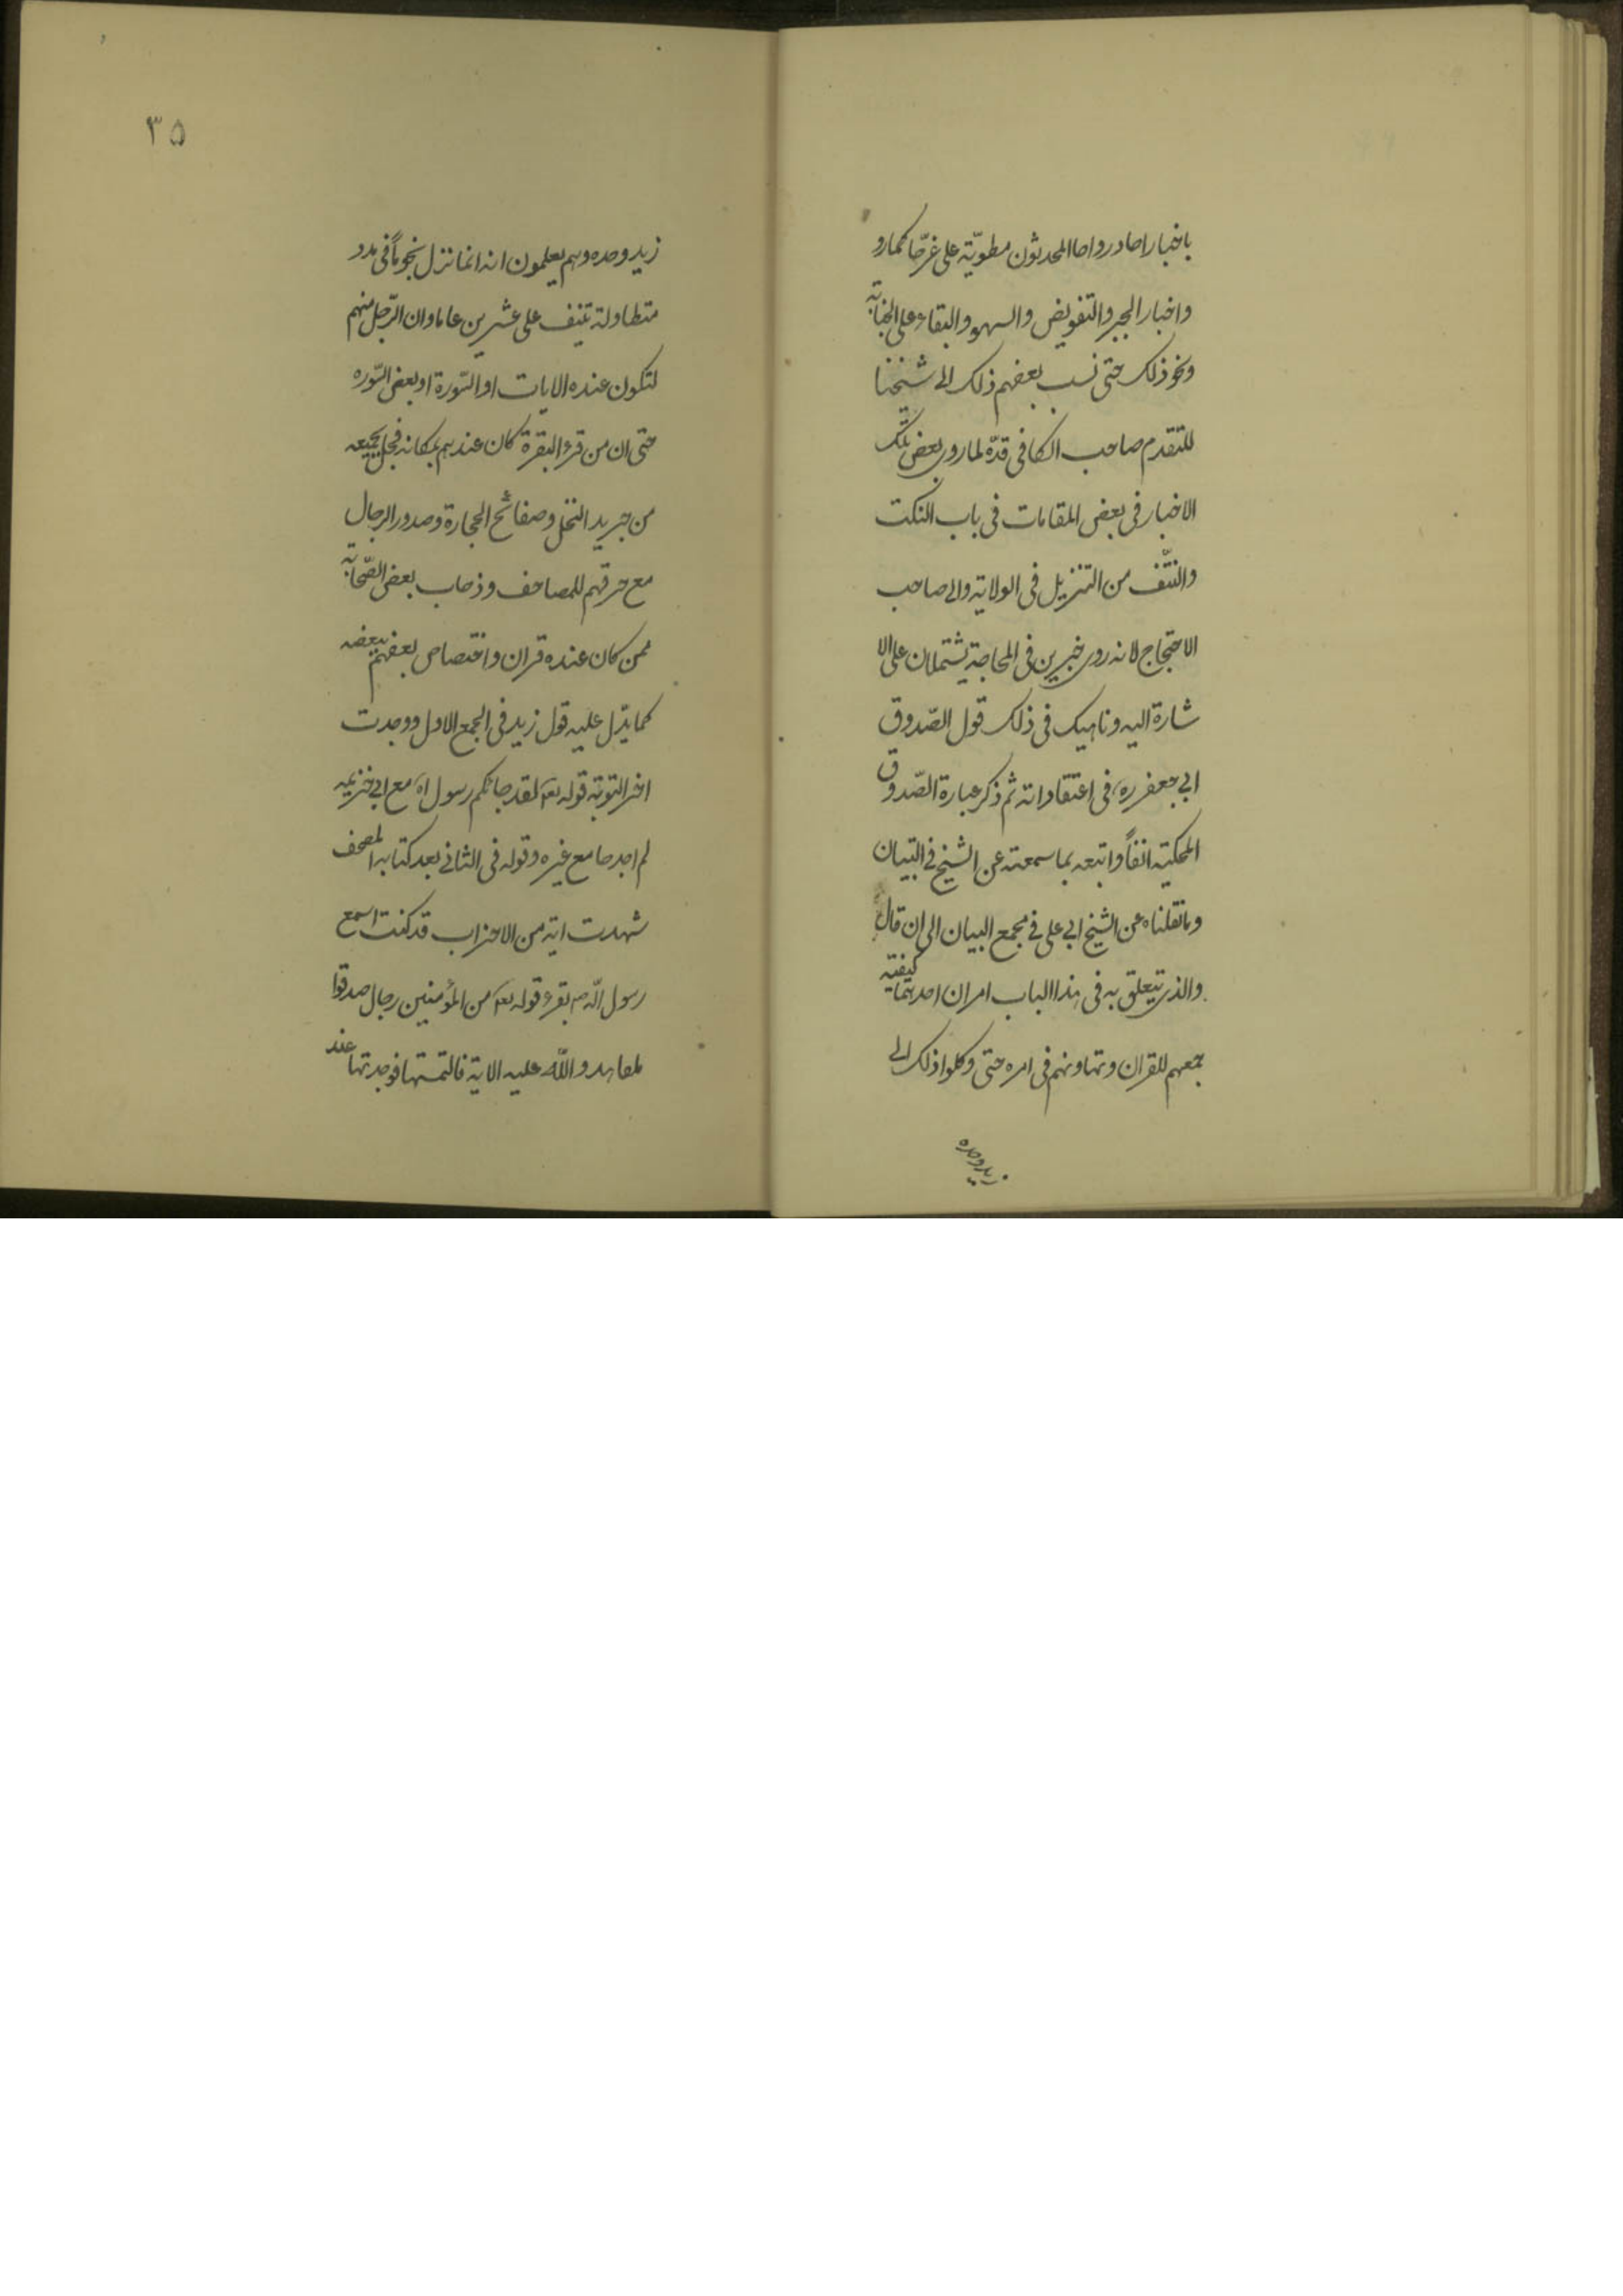 باخبار احاد رواها المحدثون مطويّة على غرّها كمارو
واخبار الجبر والتفويض والسهو والبقاء على الجنابة
ونحو ذلك حتى نسب بعضهم ذلك الى شيخنا
المتقدم صاحب الكافى قدّه لما روى بعض تلك
الاخبار فى بعض المقامات فى باب النكت
والنتّف من التنزيل فى الولاية والى صاحب
الاحتجاج لانه روى خبرين فى المحاجة يشتملان على الا
شارة اليه وناهيك فى ذلك قول الصّدوق
ابى جعفر ره فى اعتقاداته ثم ذكر عبارة الصّدوق
المحكية انفاً واتبعه بما سمعته عن الشيخ فى التبيان
وما نقلناه عن الشيخ ابى على فى مجمع البيان الى ان قال
والذى يتعلق به فى هذا الباب امران احدهما كيفية
جمعهم للقران وتهاونهم فى امره حتى وكلوا ذلك الى
زيد وحده
٣٥
زيد وحده وهم يعلمون انه انما نزل نجوماً فى مدد
متطاولة تنيف على عشرين عاما وان الرّجل منهم
لتكون عنده الايات او السّورة او بعض السّوره
حتى ان من قرء البقرة كان عندهم بمكانه فجعل يجمعه
من جريد النخل وصفائح الحجارة وصدور الرجال
مع حرقهم للمصاحف وذهاب بعض الصّحابة
ممن كان عنده قران واختصاص بعضهم ببعضه
كما يدّل عليه قول زيد فى الجمع الاول ووجدت
اخر التوبة قوله تعه لقد جائكم رسول اه مع ابى خزيمه
لم اجدها مع غيره وقوله فى الثانى بعد كتابه المصحف
شهدت اية من الاحزاب قد كنت اسمع
رسول الله ص يقرء قوله تعه من المؤمنين رجال صدقوا
ما عاهدوا الله عليه الاية فالتمستها فوجدتها عند